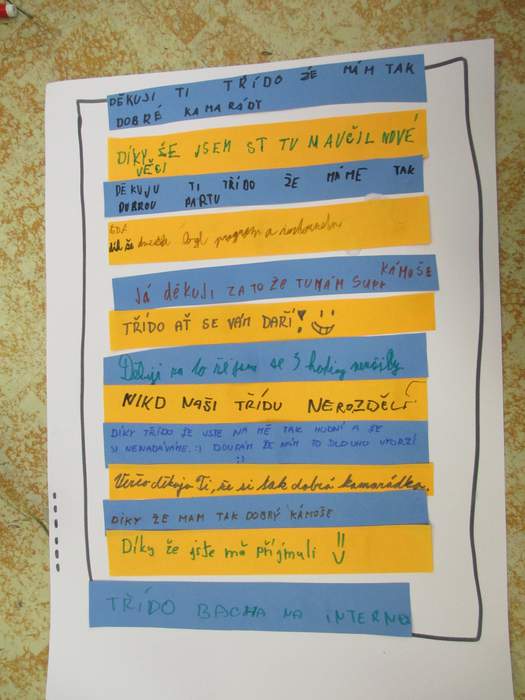 DĚKUJI TI TŘÍDO ŽE MÁM TAK
DOBRÉ KAMARÁDY
DÍKY ŽE JSEM SI TU NAUČIL NOVÉ
VĚCI
DĚKUJU TI TŘÍDO ŽE MÁME TAK
DOBROU PARTU
byl program a
Já děkuji ZA TO ŽE TU MÁM SUPR KÁMOŠE
TŘÍDO AŤ SE VÁM DAŘÍ!
Děkuji za to že jsme se 3 hodiny neučily
NIKDO NAŠI TŘÍDU NEROZDĚLÍ
DÍKY TŘÍDO ŽE JSTE NA MĚ TAK HODNÍ A ŽE
MI NENADÁVÁTE :) DOUFÁM ŽE NÁM TO DLOUHO VYDRŽÍ
:)
Verčo děkuju Ti, že si tak dobrá kamarádka.
DÍKY ŽE MAM TAK DOBRÝ KÁMOŠE
Díky že jste mě přijmuli :)
TŘÍDO BACHA NA INTERNET